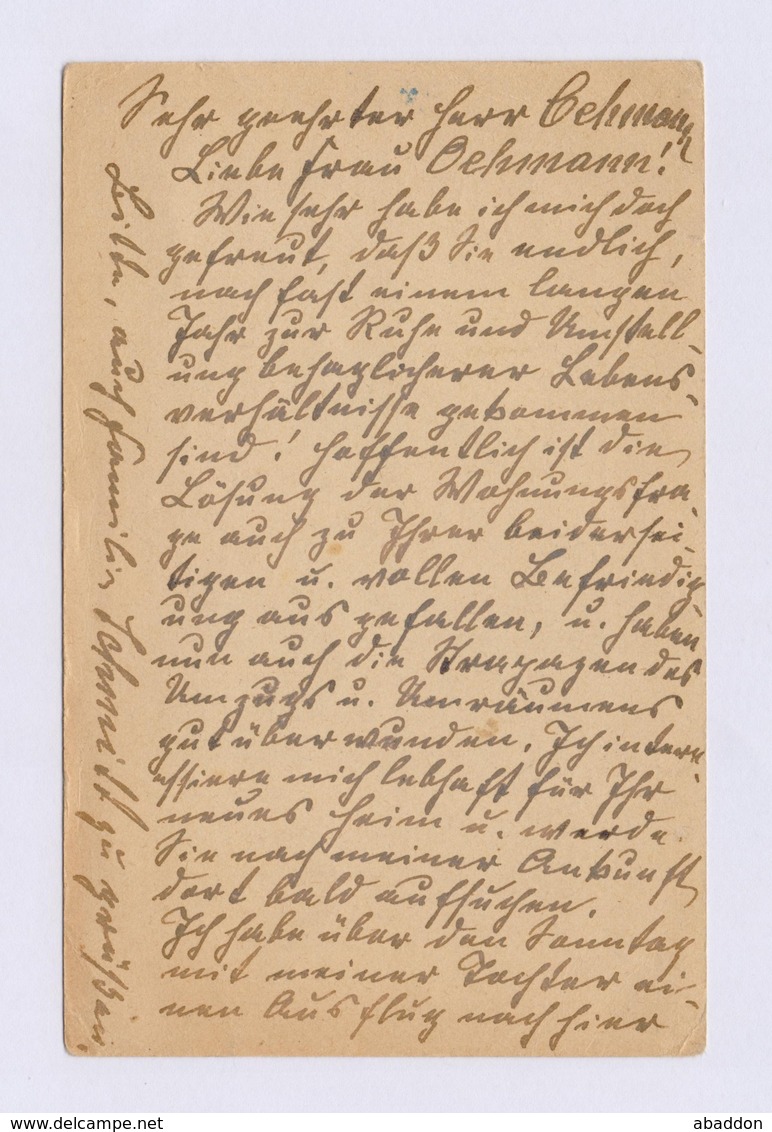 Sehr geehrter Herr Oehmann
Liebe Frau Oehmann!
Wie sehr habe ich mich doch
gefreut, daß Sie endlich,
nach fast einem langen
Jahr zur Ruhe und Umstell-
ung behaglicherer Lebens-
verhältnisse gekommen
sind! Hoffentlich ist die
Lösung der Wohnungsfra-
ge auch zu Ihrer beidersei-
tigen u. vollen Befriedig-
ung ausgefallen, u. haben
nun auch die Strapazen des
Umzugs u. Umräumens
gut überwunden. Ich inter-
essiere mich lebhaft für Ihr
neues Heim u. werde
Sie nach meiner Ankunft
dort bald aufsuchen.
Ich habe über den Sonntag
mit meiner Tochter ei-
nen Ausflug nach hier
Bitte, auch Familie Schmidt zu grüßen.
www.delcampe.net
abaddon